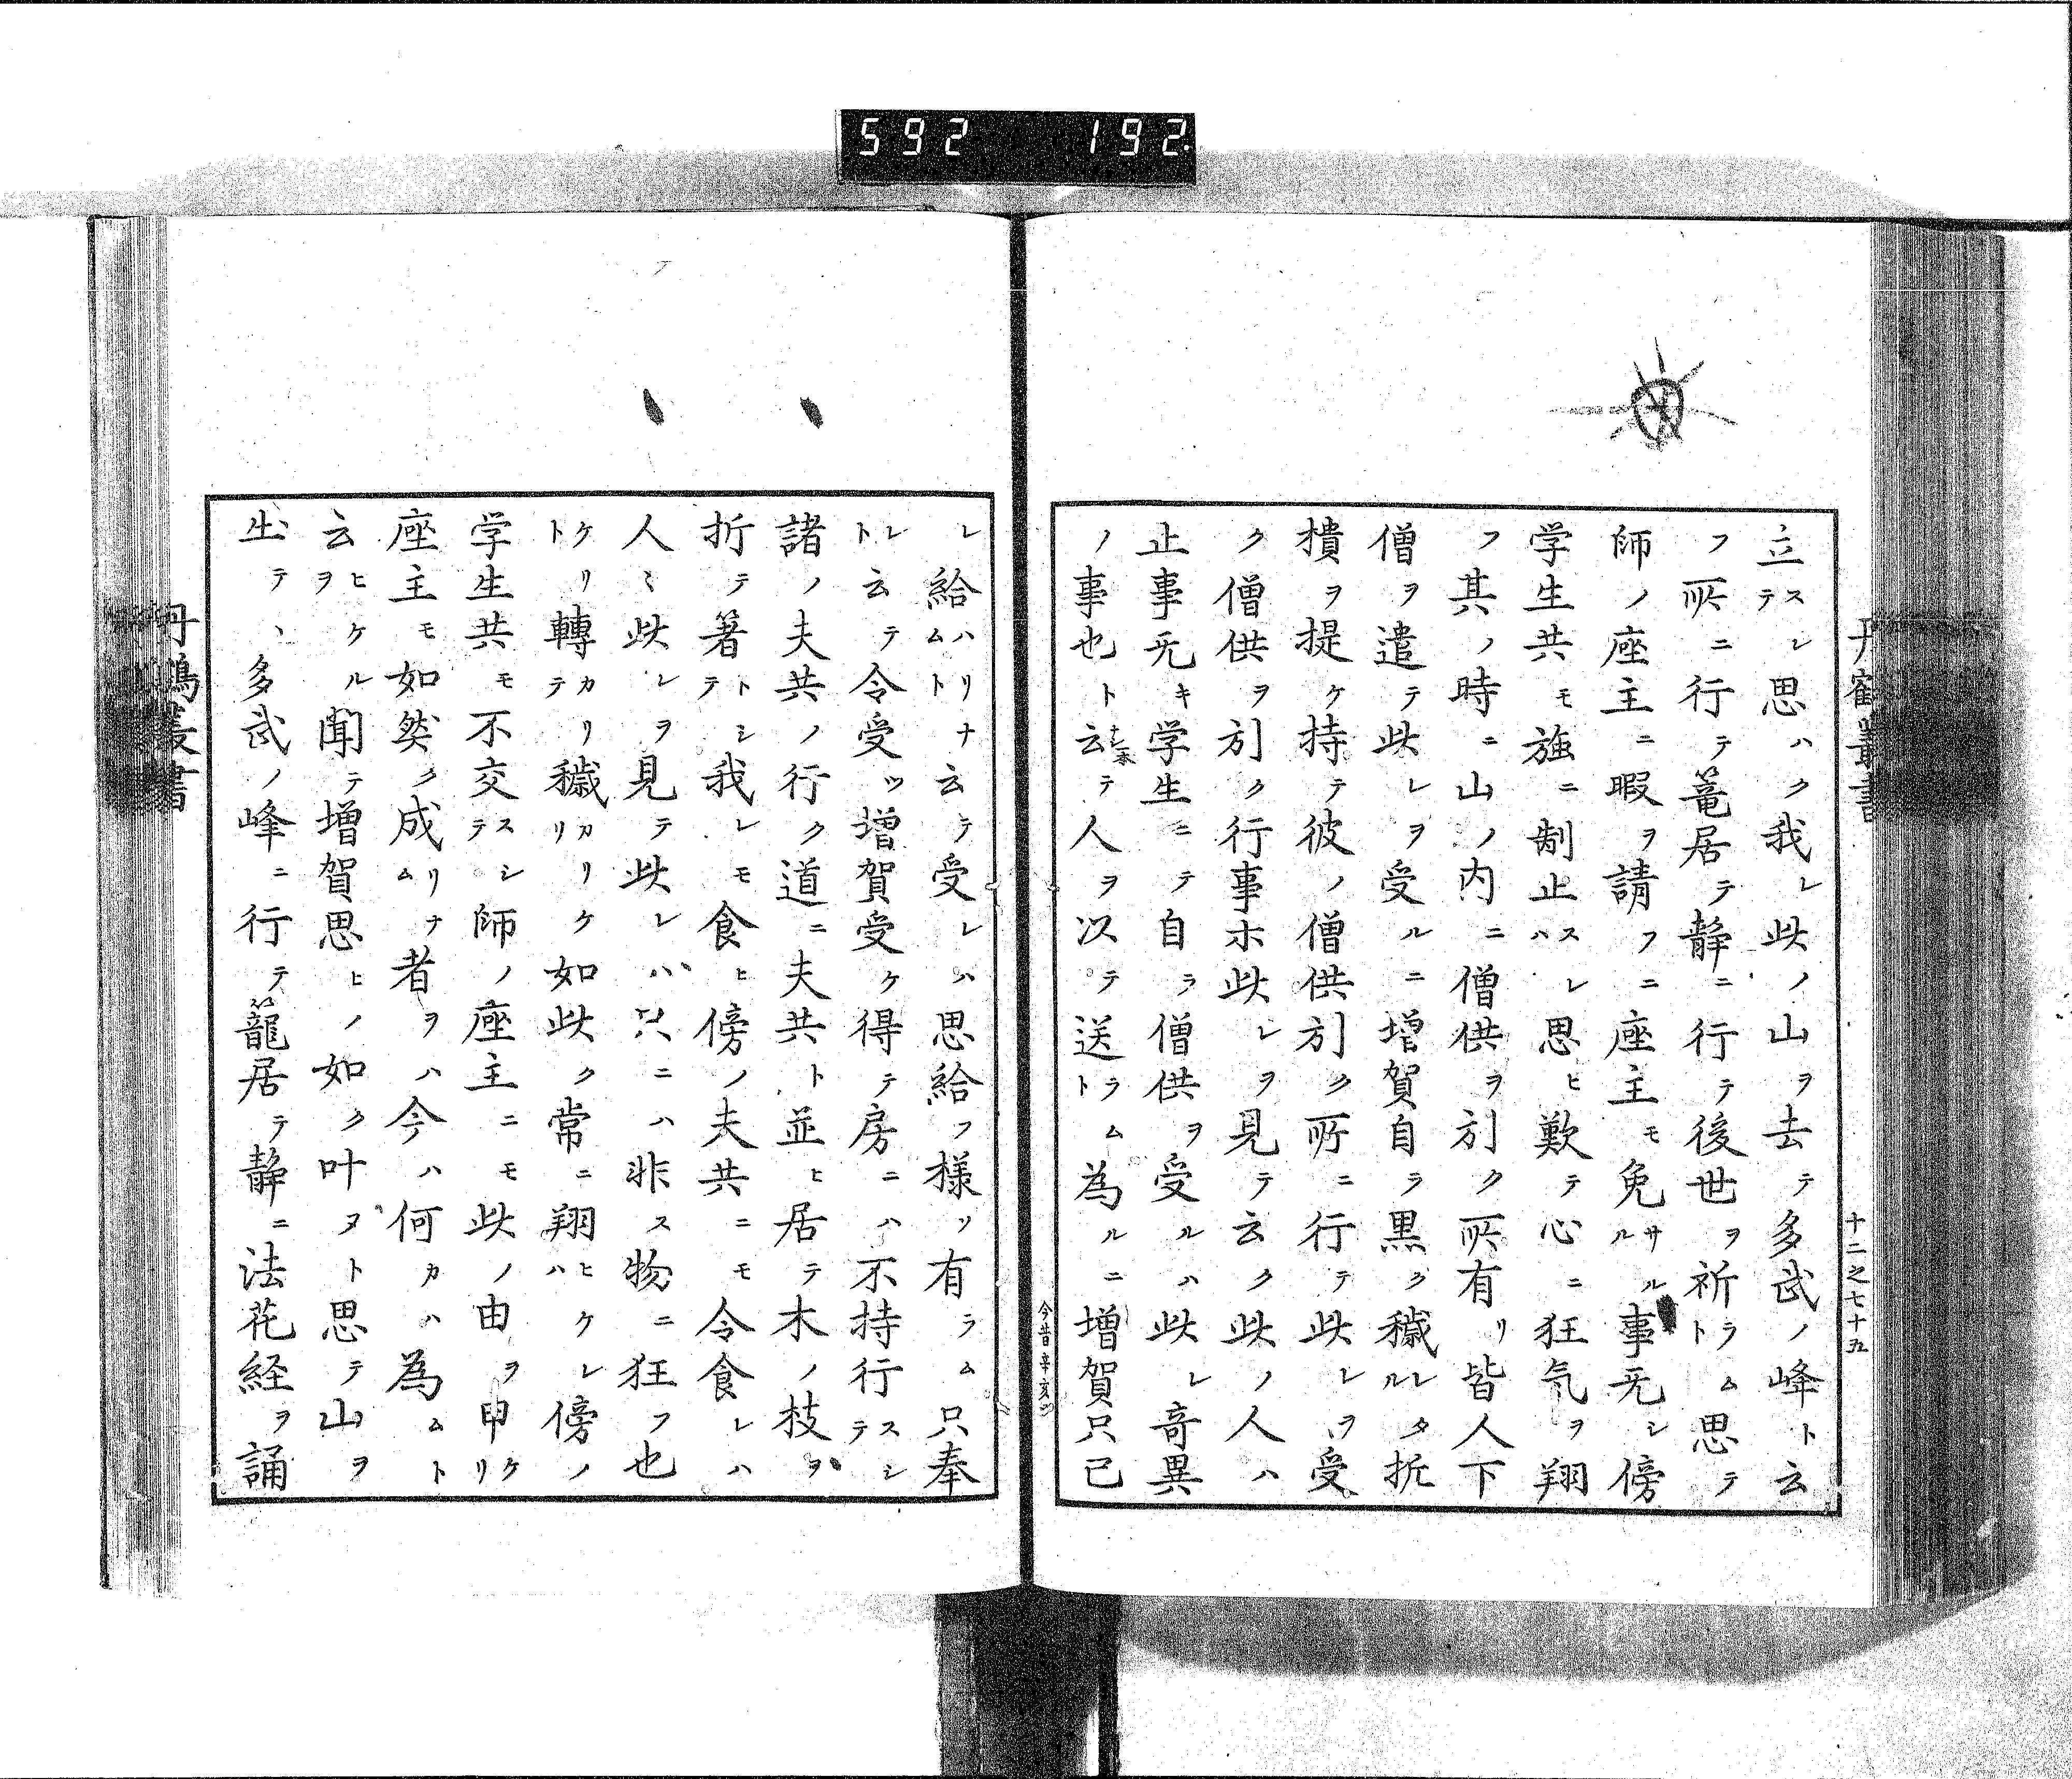 592 192.
丹鶴叢書
十二之七十五
立スレテ思ハク我レ此ノ山ヲ去テ多武ノ峰ト云
フ所ニ行テ篭居テ静ニ行テ後世ヲ祈ラムト思テ
師ノ座主ニ暇ヲ請フニ座主モ免サルル事无シ傍
学生共モ強ニ制止スレハ思ヒ歎テ心ニ狂気ヲ翔
フ其ノ時ニ山ノ内ニ僧供ヲ引ク所有リ皆人下
僧ヲ遣テ此レヲ受ルニ増賀自ラ黒ク穢レタル折
樻ヲ提ケ持テ彼ノ僧供引ク所ニ行テ此レヲ受
ク僧供ヲ引ク行事ホ此レヲ見テ云ク此ノ人ハ
止事无キ学生ニテ自ラ僧供ヲ受ルハ此レ奇異
ノ事也ト云テ人ヲ以テ送ラムト為ルニ増賀只己
今昔辛亥
レ給ハリナムト云テ受レハ思給フ様ソ有ラム只奉
レト云テ令受ツ増賀受ケ得テ房ニハ不持行スシテ
諸ノ夫共ノ行ク道ニ夫共ト並ヒ居テ木ノ枝ヲ
折テ箸トシテ我レモ食ヒ傍ノ夫共ニモ令食レハ
人ミ此レヲ見テ此レハ只ニハ非ス物ニ狂フ也
ケリト轉カリテ穢カリケリ如此ク常ニ翔ヒケレハ傍ノ
学生共モ不交スシテ師ノ座主ニモ此ノ由ヲ申ケリ
座主モ如然ク成リナム者ヲハ今ハ何カハ為ムト
云ヒケルヲ聞テ増賀思ヒノ如ク叶ヌト思テ山ヲ
出テ、多武ノ峰ニ行テ籠居テ静ニ法花経ヲ誦
丹鶴叢書